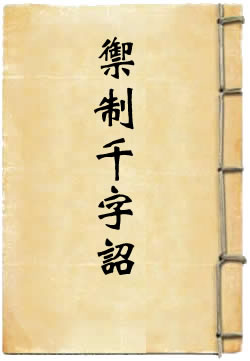 禦制千字詔